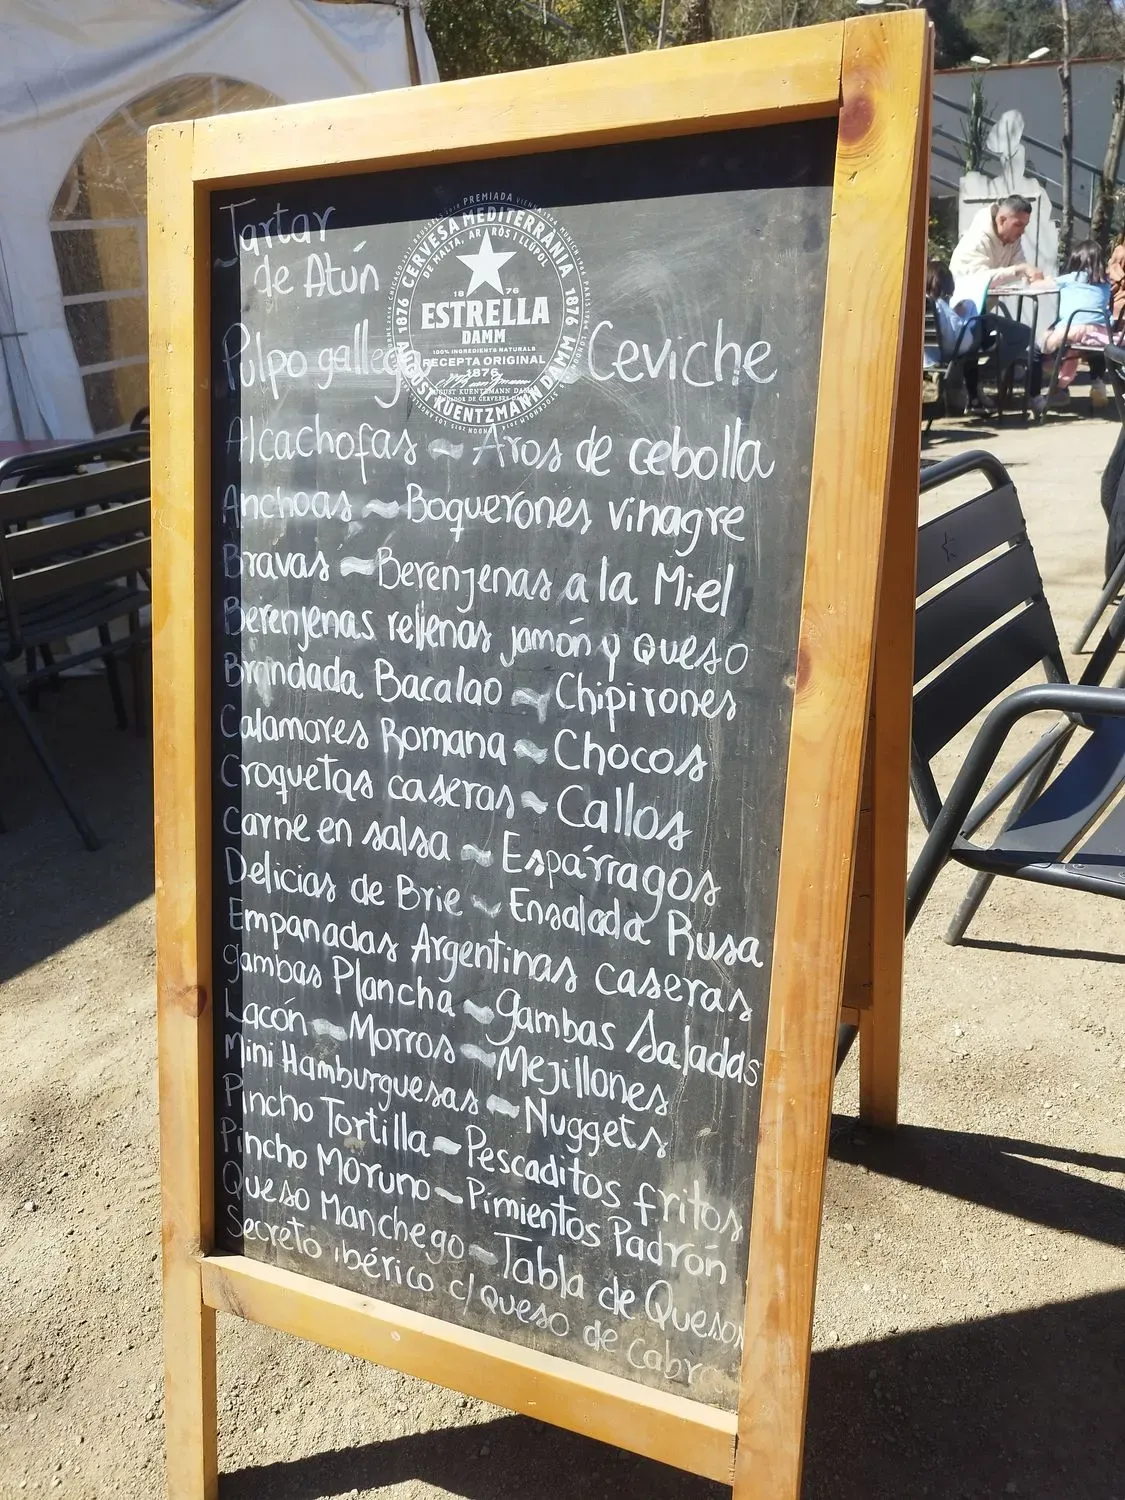 Tartar
de Atún
PREMIADA
CERVESA MEDITERRÀNIA
DE MALTA, ARRÒS I LLÚPOL
1876
1876
18 76
ESTRELLA
DAMM
100% INGREDIENTS NATURALS
RECEPTA ORIGINAL
1876
AUGUST KUENTZMANN DAMM
Pulpo gallego Ceviche
Alcachofas ~ Aros de cebolla
Anchoas ~ Boquerones vinagre
Bravas ~ Berenjenas a la Miel
Berenjenas rellenas jamón y queso
Brandada Bacalao ~ Chipirones
Calamares Romana ~ Chocos
Croquetas caseras ~ Callos
Carne en salsa ~ Espárragos
Delicias de Brie ~ Ensalada Rusa
Empanadas Argentinas caseras
gambas Plancha ~ gambas Saladas
Lacón ~ Morros ~ Mejillones
Mini Hamburguesas ~ Nuggets
Pincho Tortilla ~ Pescaditos fritos
Pincho Moruno ~ Pimientos Padrón
Queso Manchego ~ Tabla de Quesos
Secreto ibérico c/ queso de Cabra